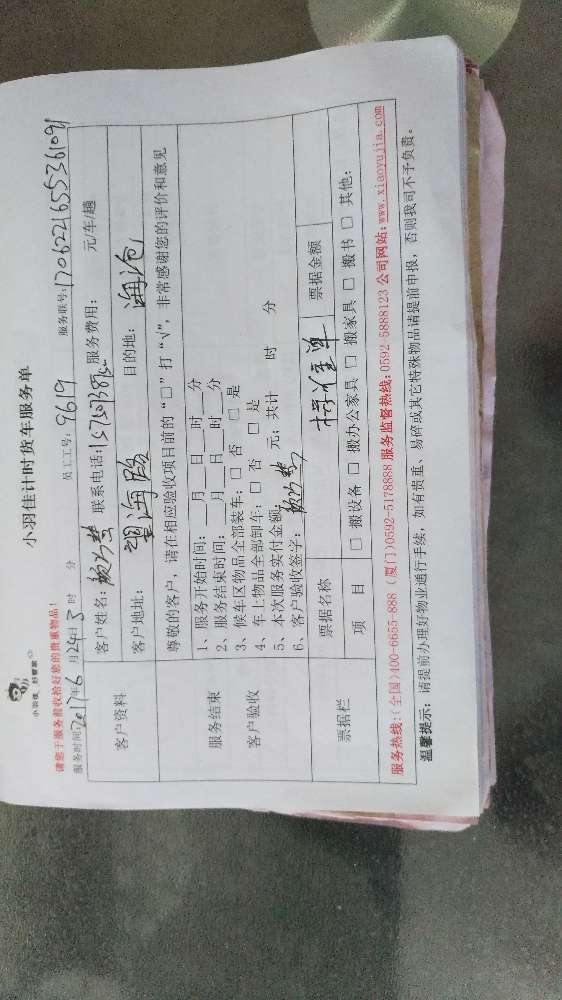 小羽佳计时货车服务单
小羽佳 好管家
请您于服务前收拾好您的贵重物品!
服务时间:2017年6月24日8时 分 员工工号:9619 服务联号:170622165536109
客户资料 客户姓名: 联系电话: 服务费用: 元/车/趟
客户地址: 望海路 目的地: 海沧
尊敬的客户,请在相应验收项目前的“□”打“√”,非常感谢您的评价和意见
服务结束
客户验收
1、服务开始时间:___月___日___时___分
2、服务结束时间:___月___日___时___分
3、候车区物品全部装车:□ 否 □ 是
4、车上物品全部卸车:□ 否 □ 是
5、本次服务实付金额: 元;共计 时 分
6、客户验收签字:
票据栏 票据名称 标准单 票据金额
项 目 □ 搬设备 □ 搬办公家具 □ 搬家具 □ 搬书 □ 其他:
服务热线:(全国)400-6655-888 (厦门)0592-5178888 服务监督热线:0592-5888123 公司网站:www.xiaoyujia.com
温馨提示:请提前办理好物业通行手续,如有贵重、易碎或其它特殊物品请提前申报,否则我司不予负责。